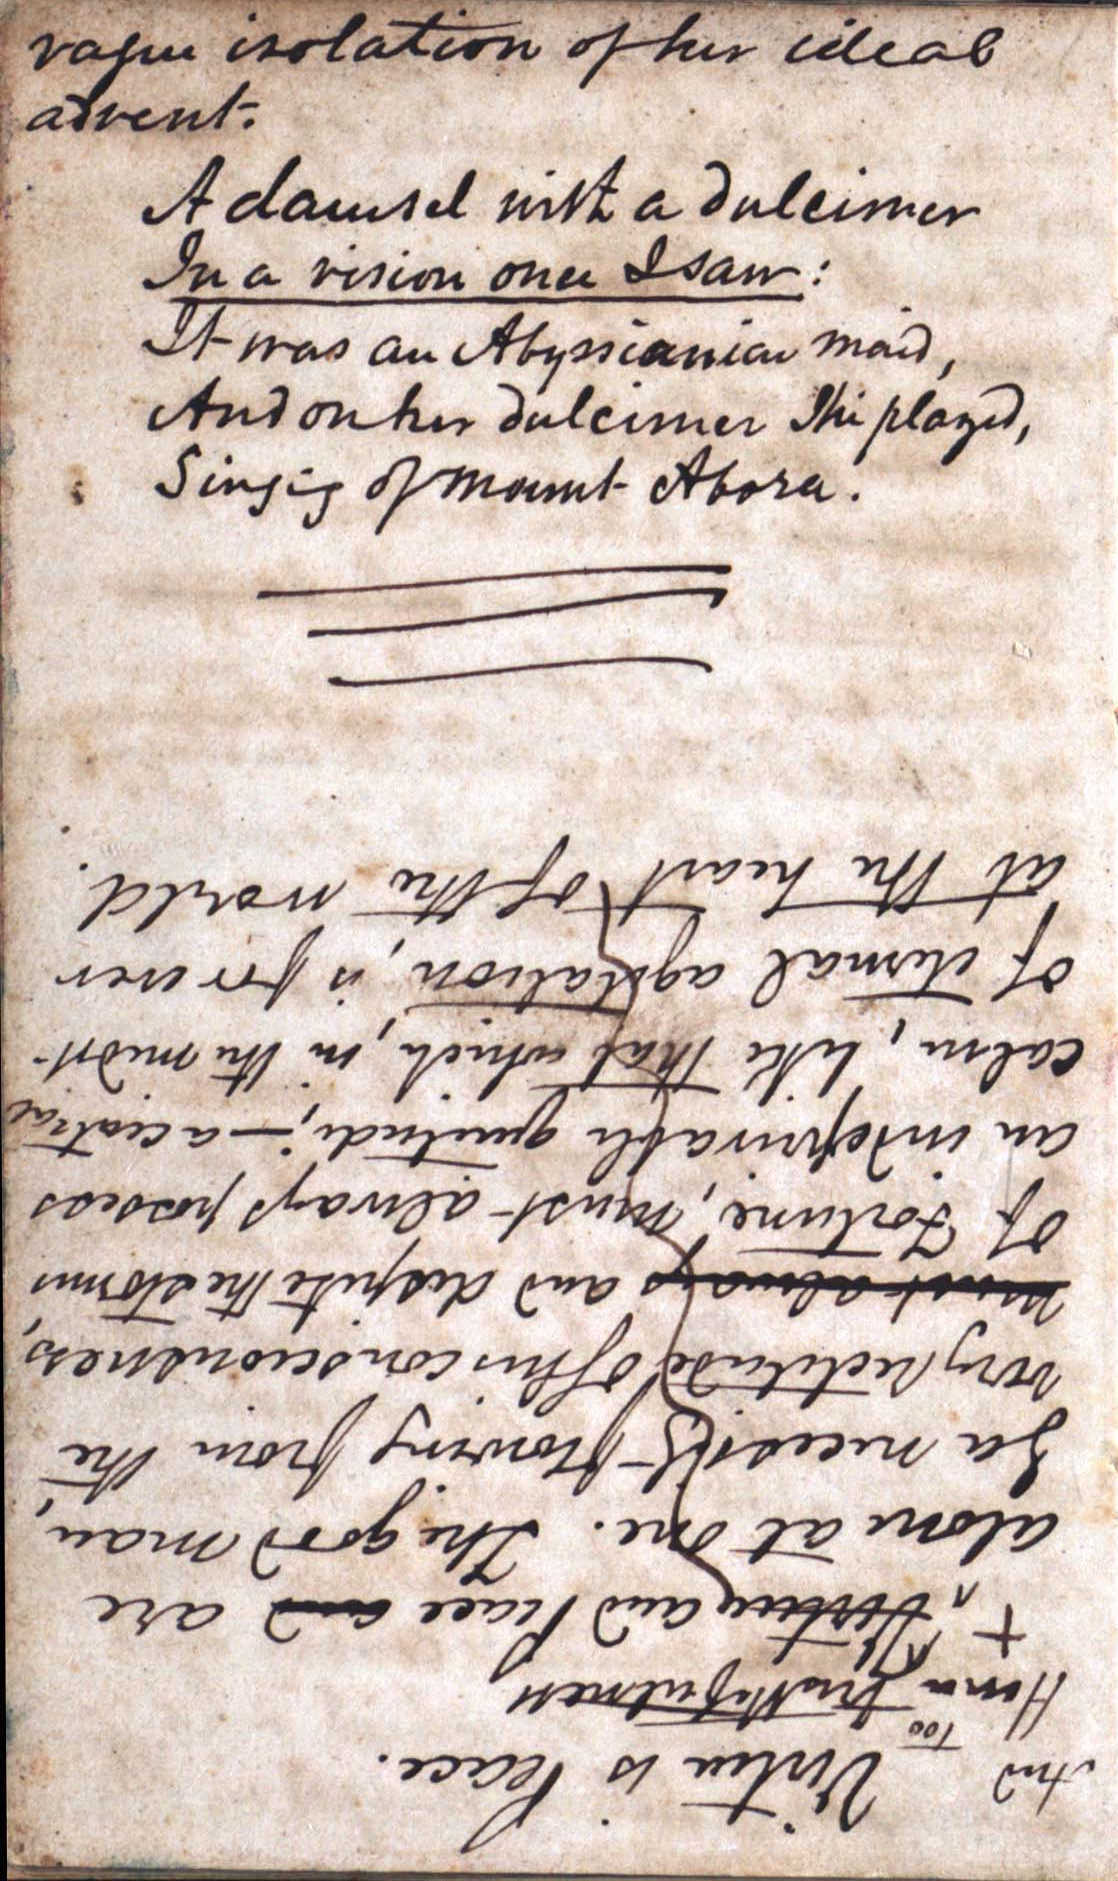 vague isolation of her ideal
advent.
A damsel with a dulcimer
In a vision once I saw:
It was an Abyssianian maid,
And on her dulcimer she played,
Singing of Mount Abora.
Virtue is Peace.
And
Hence too Truthfulness
+ Virtue and Peace and are
alone at one. The good man,
by a necessity flowing from the
very rectitude of his consciousness,
must always and despite the storms
of Fortune, must always possess
an indeprivable quietude;—a central
calm, like that which, in the midst
of eternal agitation, is for ever
at the heart of the world.